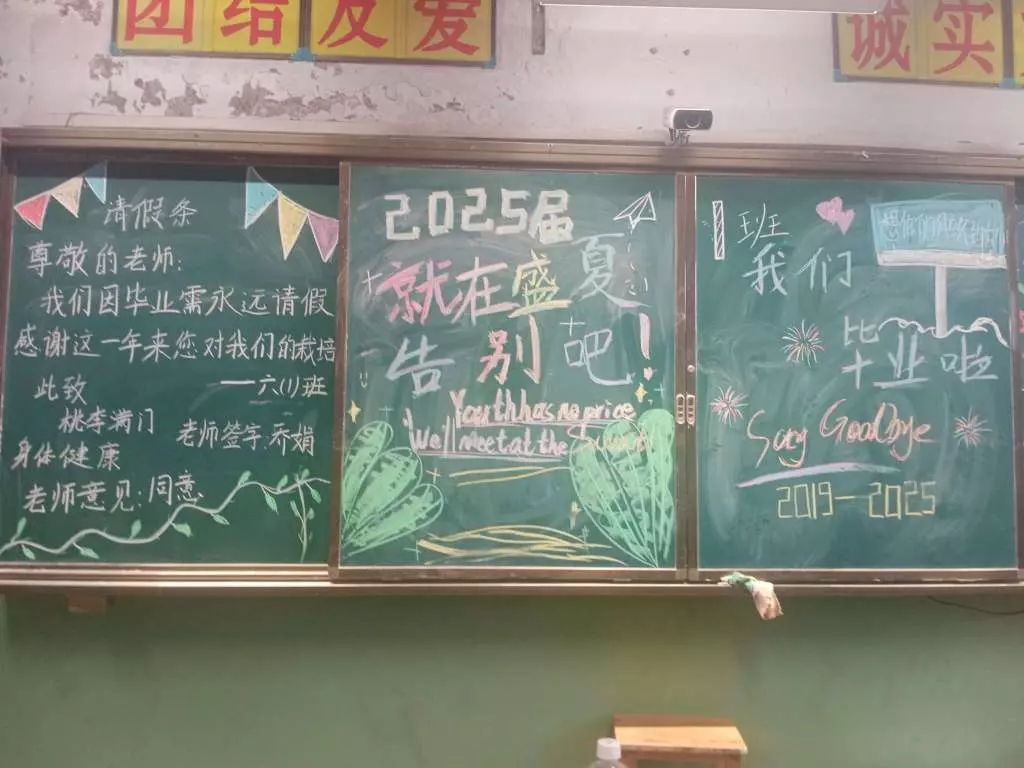 团结友爱
诚实
请假条
尊敬的老师:
我们因毕业需永远请假
感谢这一年来您对我们的栽培
此致
——六(1)班
桃李满门
老师签字:乔娟
身体健康
老师意见:同意
2025届
就在盛夏
告别吧!
Youth has no price
We'll meet at the
班
我们
毕业啦
Say GoodBye
2019—2025